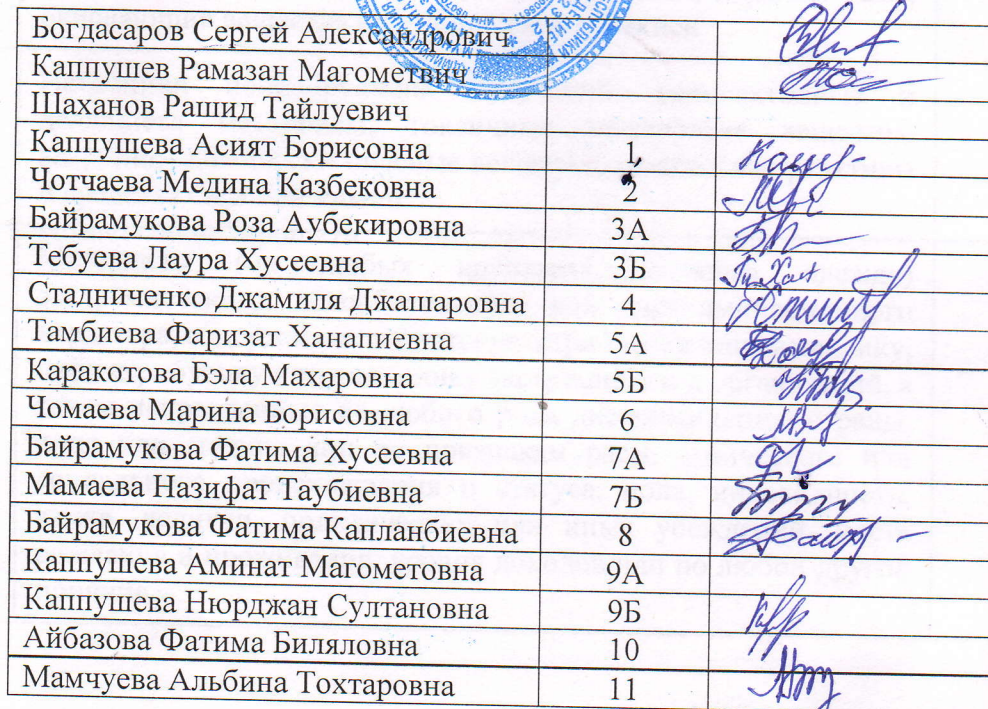 Богдасаров Сергей Александрович
Каппушев Рамазан Магометвич
Шаханов Рашид Тайлуевич
Каппушева Асият Борисовна 1
Чотчаева Медина Казбековна 2
Байрамукова Роза Аубекировна 3А
Тебуева Лаура Хусеевна 3Б
Стадниченко Джамиля Джашаровна 4
Тамбиева Фаризат Ханапиевна 5А
Каракотова Бэла Махаровна 5Б
Чомаева Марина Борисовна 6
Байрамукова Фатима Хусеевна 7А
Мамаева Назифат Таубиевна 7Б
Байрамукова Фатима Капланбиевна 8
Каппушева Аминат Магометовна 9А
Каппушева Нюрджан Султановна 9Б
Айбазова Фатима Биляловна 10
Мамчуева Альбина Тохтаровна 11